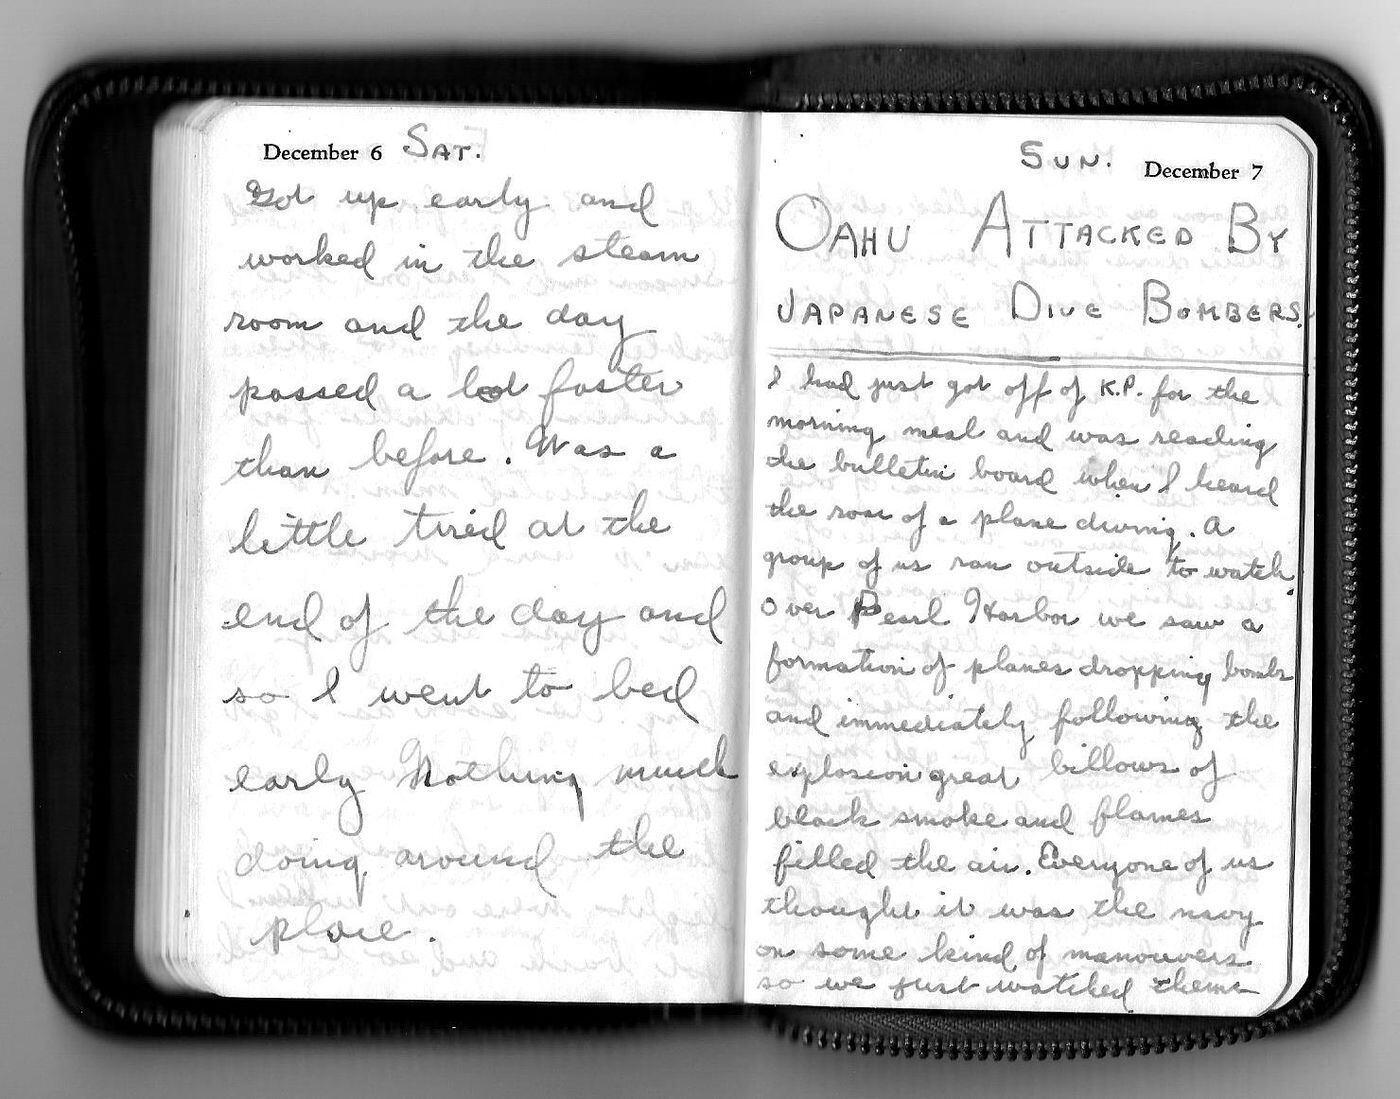 December 6 SAT.
Got up early and
worked in the steam
room and the day
passed a lot faster
than before. Was a
little tired at the
end of the day and
so I went to bed
early Nothing much
doing around the
place.
SUN. December 7
OAHU ATTACKED BY
JAPANESE DIVE BOMBERS.
I had just got off of K.P. for the
morning meal and was reading
the bulletin board when I heard
the roar of a plane diving. A
group of us ran outside to watch.
Over Pearl Harbor we saw a
formation of planes dropping bombs
and immediately following the
explosion great billows of
black smoke and flames
filled the air. Everyone of us
thought it was the navy
on some kind of manouvers
so we just watched them